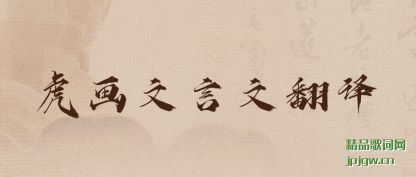 虎画文言文翻译
精品歌词网
jpjgw.cn